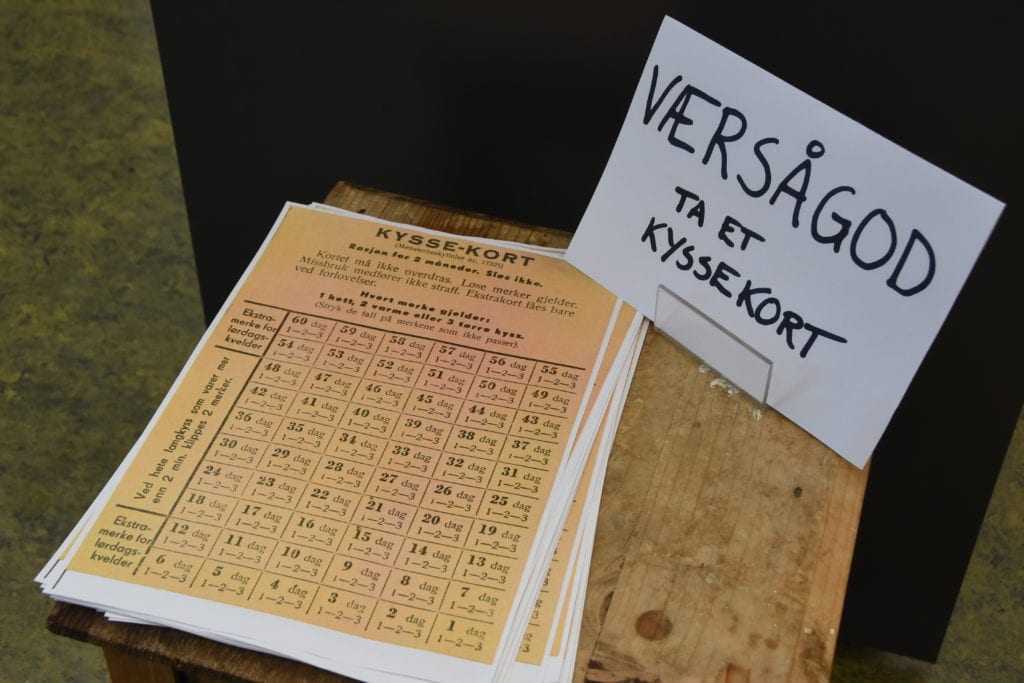 KYSSE-KORT
(Mønsterbeskyttelse nr. 17325)
Rasjon for 2 måneder. Sløs ikke.
Kortet må ikke overdras. Løse merker gjelder.
Missbruk medfører ikke straff. Ekstrakort fåes bare
ved forlovelser.
Hvert merke gjelder:
1 hett, 2 varme eller 3 tørre kyss.
(Stryk de tall på merkene som ikke passer).
Ekstra-
merke for
lørdags-
kvelder
Ved hete langkyss som varer mer
enn 2 min. klippes 2 merker.
Ekstra-
merke for
lørdags-
kvelder
60 dag 59 dag 58 dag 57 dag 56 dag 55 dag
1—2—3 1—2—3 1—2—3 1—2—3 1—2—3 1—2—3
54 dag 53 dag 52 dag 51 dag 50 dag 49 dag
1—2—3 1—2—3 1—2—3 1—2—3 1—2—3 1—2—3
48 dag 47 dag 46 dag 45 dag 44 dag 43 dag
1—2—3 1—2—3 1—2—3 1—2—3 1—2—3 1—2—3
42 dag 41 dag 40 dag 39 dag 38 dag 37 dag
1—2—3 1—2—3 1—2—3 1—2—3 1—2—3 1—2—3
36 dag 35 dag 34 dag 33 dag 32 dag 31 dag
1—2—3 1—2—3 1—2—3 1—2—3 1—2—3 1—2—3
30 dag 29 dag 28 dag 27 dag 26 dag 25 dag
1—2—3 1—2—3 1—2—3 1—2—3 1—2—3 1—2—3
24 dag 23 dag 22 dag 21 dag 20 dag 19 dag
1—2—3 1—2—3 1—2—3 1—2—3 1—2—3 1—2—3
18 dag 17 dag 16 dag 15 dag 14 dag 13 dag
1—2—3 1—2—3 1—2—3 1—2—3 1—2—3 1—2—3
12 dag 11 dag 10 dag 9 dag 8 dag 7 dag
1—2—3 1—2—3 1—2—3 1—2—3 1—2—3 1—2—3
6 dag 5 dag 4 dag 3 dag 2 dag 1 dag
1—2—3 1—2—3 1—2—3 1—2—3 1—2—3 1—2—3
VÆRSÅGOD
TA ET
KYSSEKORT